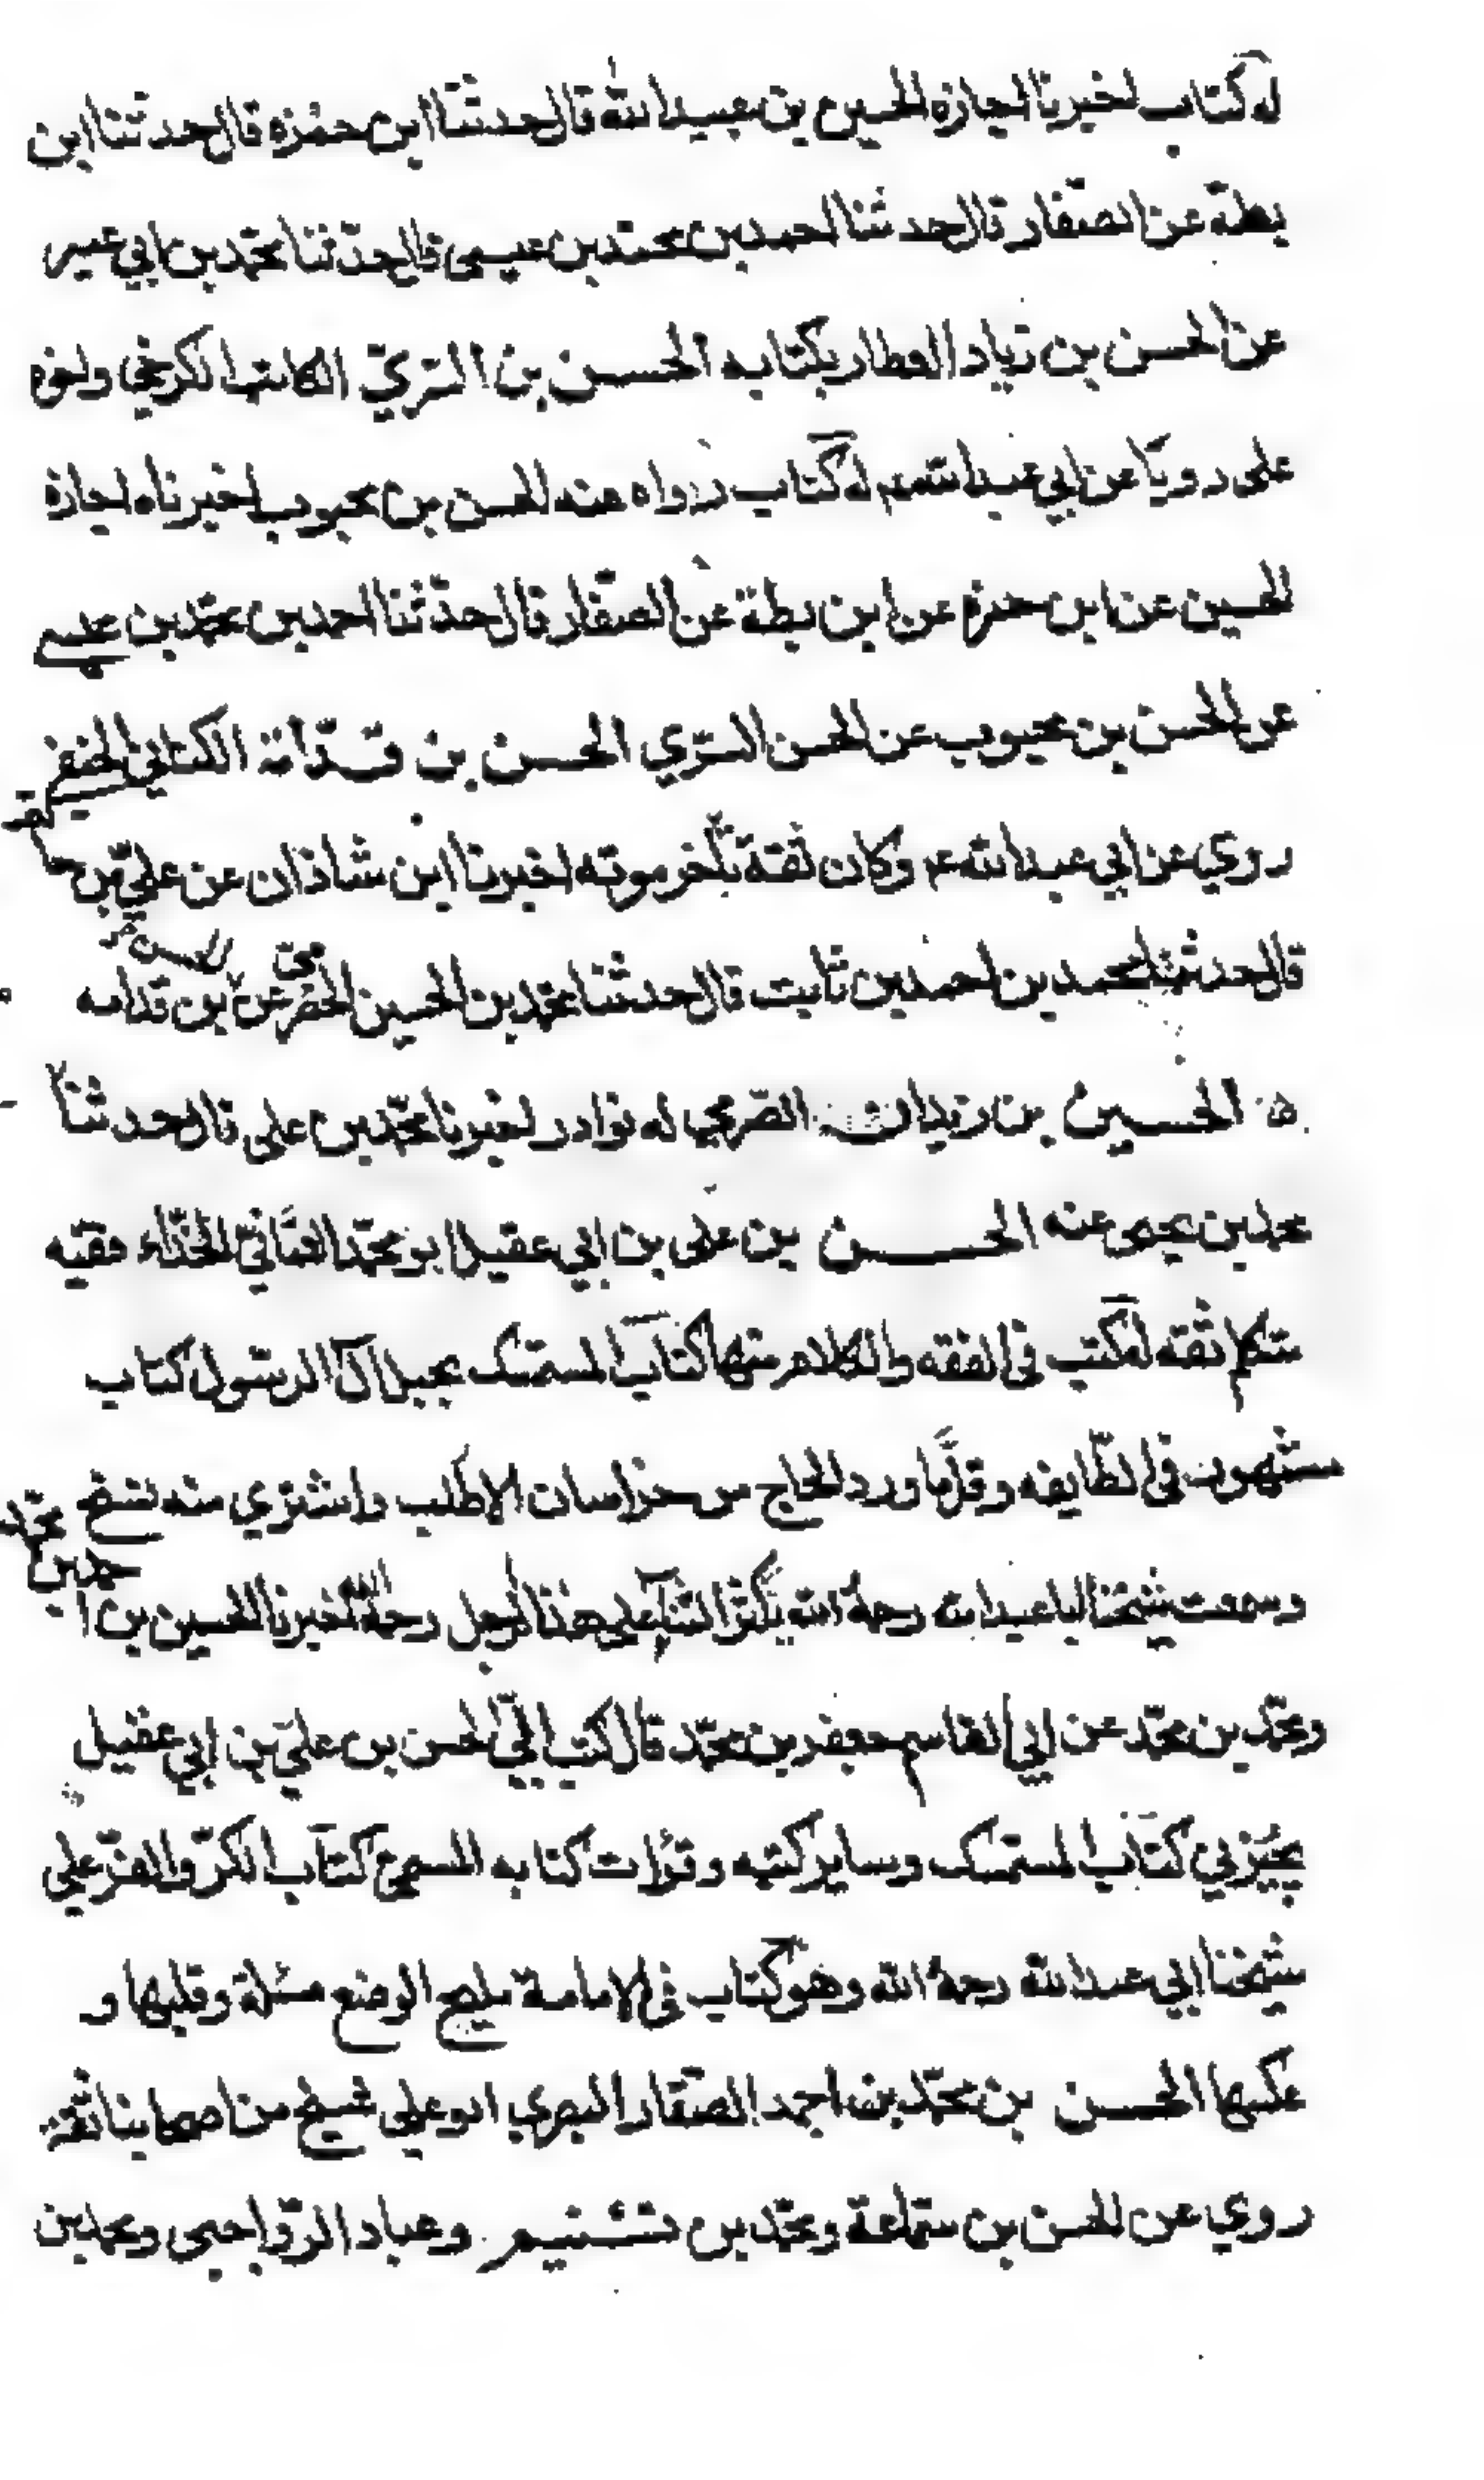 له كتاب اخبرنا اجازة الحسين بن عبيد الله قال حدثنا ابن حمزة قال حدثنا ابن
بطة عن الصفار قال حدثنا احمد بن محمد بن عيسى قال حدّثنا محمّد بن ابي عمير
عن الحسن بن زياد العطار بكتابه الحسن بن السّريّ الكاتب الكرخي واخوه
على رويا عن ابي عبد الله ع له كتاب رواه عنه الحسن بن محبوب اخبرناه اجازة
الحسين عن ابن حمزة عن ابن بطة عن الصفّار قال حدّثنا احمد بن محمّد بن عيسى
عن الحسن بن محبوب عن الحسن السّري الحسن بن قدامة الكناني الحنفي
روي عن ابي عبد الله ع وكان ثقة تأخر موته اخبرنا ابن شاذان عن علي بن حاتم
قال حدثنا محمد بن احمد بن ثابت قال حدثنا محمد بن الحسين الحضرمي عن الحسن بن قدامه
الحسين بن زيدان الصّرمي له نوادر اخبرنا محمّد بن علي قال حدثنا
محمد بن يحيى عنه الحسن بن علي بن ابي عقيل ابو محمّد العمّانيّ الحذّاء فقيه
متكلم ثقه له كتب في الفقه والكلام منها كتاب المستمسك بحبل آل الرسّول كتاب
مشهور في الطّايفه وقلّما ورد الحاج من خراسان الا طلب واشتري منه نسخ
وسمعت شيخنا ابا عبد الله رحمه الله يكثر الثناء على هذا الرجل رحمه الله اخبرنا الحسين بن احمد بن محمّد
ومحمّد بن محمّد عن ابي القاسم جعفر بن محمّد قال كتب اليّ الحسن بن علي بن ابي عقيل
يجيزني كتاب المستمسك وساير كتبه وقرأت كتابه المسمى كتاب الكرّ والفرّ على
شيخنا ابي عبد الله رحمه الله وهو كتاب في الامامة مليح الوضع مسئلة وقلبها و
عكسها الحسن بن محمّد بن احمد الصفّار البصري ابو علي شيخ من اصحابنا ثقة
روي عن الحسن بن سمّاعة ومحمّد بن تسنيم وعباد الرّواجني ومحمد بن